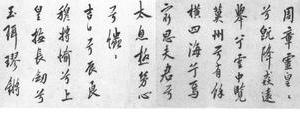 周章靈皇：
兮既降猋遠
舉兮雲中覽
冀州兮有餘
橫四海兮焉
窮思夫君兮
太息極勞心
兮
吉日兮辰良
穆將愉兮上
皇撫長劍兮
玉珥璆鏘